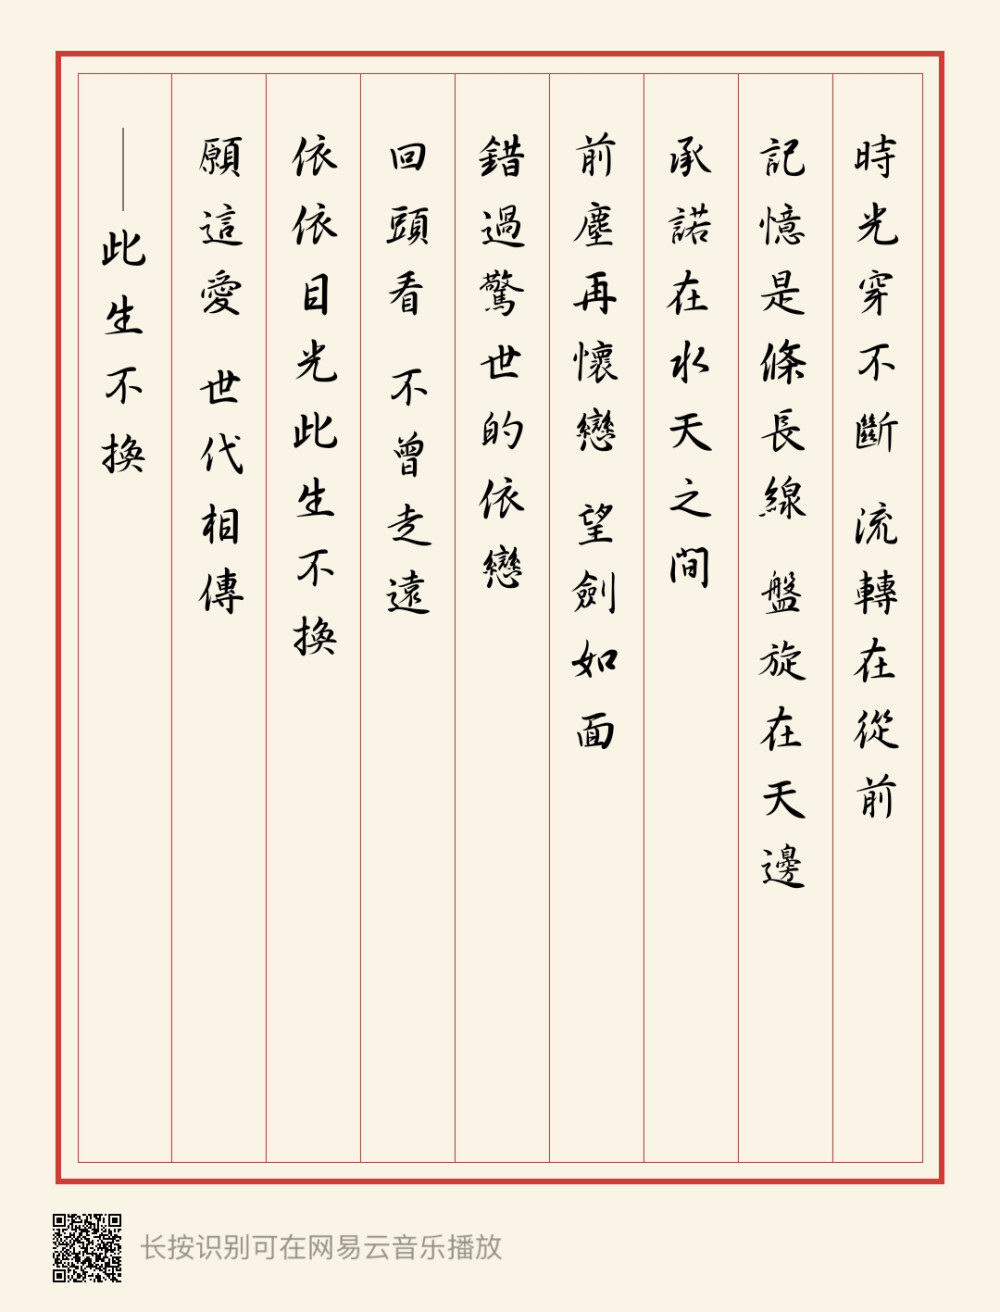 時光穿不斷 流轉在從前
記憶是條長線 盤旋在天邊
承諾在水天之間
前塵再懷戀 望劍如面
錯過驚世的依戀
回頭看 不曾走遠
依依目光此生不換
願這愛 世代相傳
——此生不換
长按识别可在网易云音乐播放